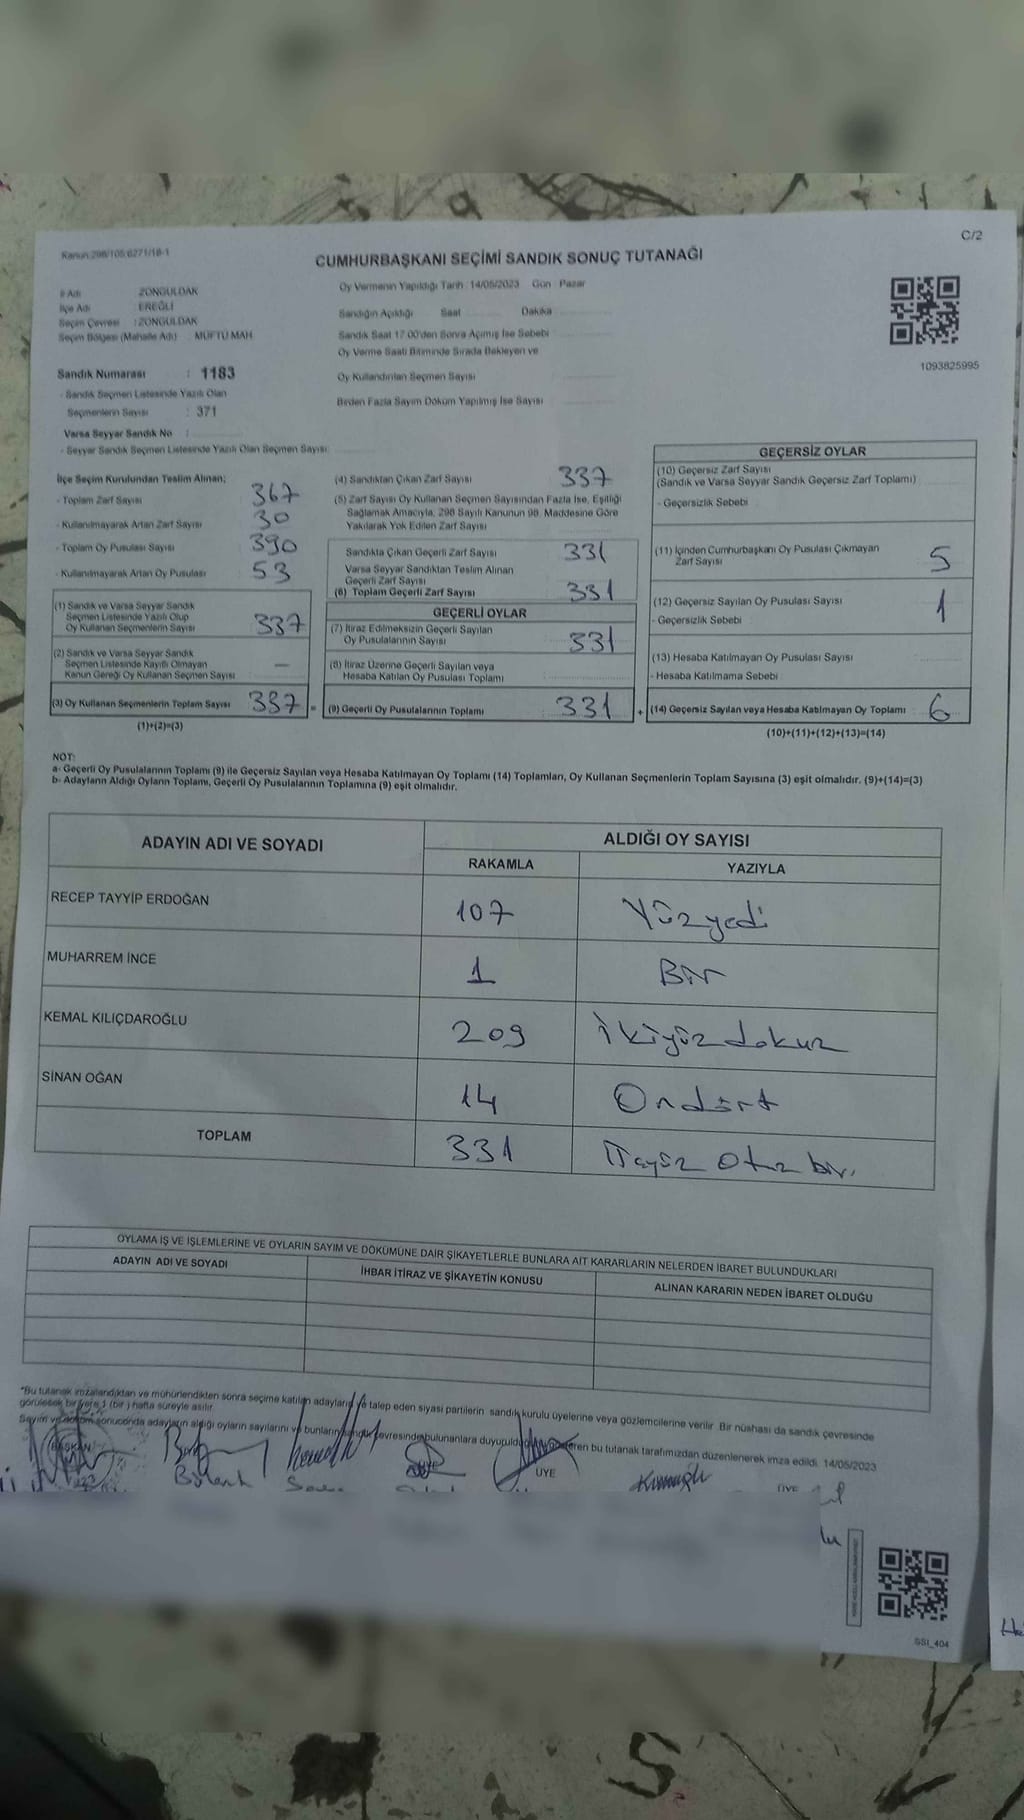 C/2
Kanun:298/105;6271/18-1
CUMHURBAŞKANI SEÇİMİ SANDIK SONUÇ TUTANAĞI
İl Adı : ZONGULDAK
İlçe Adı : EREĞLİ
Seçim Çevresi : ZONGULDAK
Seçim Bölgesi (Mahalle Adı) : MÜFTÜ MAH
Sandık Numarası : 1183
- Sandık Seçmen Listesinde Yazılı Olan
Seçmenlerin Sayısı : 371
Varsa Seyyar Sandık No :
- Seyyar Sandık Seçmen Listesinde Yazılı Olan Seçmen Sayısı:
Oy Vermenin Yapıldığı Tarih : 14/05/2023 Gün : Pazar
Sandığın Açıldığı Saat Dakika
Sandık Saat 17:00'den Sonra Açımış İse Sebebi
Oy Verme Saati Bitiminde Sırada Bekleyen ve
Oy Kullandırılan Seçmen Sayısı
Birden Fazla Sayım Döküm Yapılmış İse Sayısı
1093825995
İlçe Seçim Kurulundan Teslim Alınan;
- Toplam Zarf Sayısı 367
- Kullanılmayarak Artan Zarf Sayısı 30
- Toplam Oy Pusulası Sayısı 390
- Kullanılmayarak Artan Oy Pusulası 53
(1) Sandık ve Varsa Seyyar Sandık
Seçmen Listesinde Yazılı Olup
Oy Kullanan Seçmenlerin Sayısı 337
(2) Sandık ve Varsa Seyyar Sandık
Seçmen Listesinde Kayıtlı Olmayan
Kanun Gereği Oy Kullanan Seçmen Sayısı —
(3) Oy Kullanan Seçmenlerin Toplam Sayısı 337 =
(1)+(2)=(3)
(4) Sandıktan Çıkan Zarf Sayısı 337
(5) Zarf Sayısı Oy Kullanan Seçmen Sayısından Fazla İse, Eşitliği
Sağlamak Amacıyla, 298 Sayılı Kanunun 98. Maddesine Göre
Yakılarak Yok Edilen Zarf Sayısı
Sandıkta Çıkan Geçerli Zarf Sayısı 331
Varsa Seyyar Sandıktan Teslim Alınan
Geçerli Zarf Sayısı
(6) Toplam Geçerli Zarf Sayısı 331
GEÇERLİ OYLAR
(7) İtiraz Edilmeksizin Geçerli Sayılan
Oy Pusulalarının Sayısı 331
(8) İtiraz Üzerine Geçerli Sayılan veya
Hesaba Katılan Oy Pusulası Toplamı
(9) Geçerli Oy Pusulalarının Toplamı 331 +
GEÇERSİZ OYLAR
(10) Geçersiz Zarf Sayısı
(Sandık ve Varsa Seyyar Sandık Geçersiz Zarf Toplamı)
- Geçersizlik Sebebi
(11) İçinden Cumhurbaşkanı Oy Pusulası Çıkmayan
Zarf Sayısı 5
(12) Geçersiz Sayılan Oy Pusulası Sayısı 1
- Geçersizlik Sebebi
(13) Hesaba Katılmayan Oy Pusulası Sayısı
- Hesaba Katılmama Sebebi
(14) Geçersiz Sayılan veya Hesaba Katılmayan Oy Toplamı 6
(10)+(11)+(12)+(13)=(14)
NOT:
a- Geçerli Oy Pusulalarının Toplamı (9) ile Geçersiz Sayılan veya Hesaba Katılmayan Oy Toplamı (14) Toplamları, Oy Kullanan Seçmenlerin Toplam Sayısına (3) eşit olmalıdır. (9)+(14)=(3)
b- Adayların Aldığı Oyların Toplamı, Geçerli Oy Pusulalarının Toplamına (9) eşit olmalıdır.
ADAYIN ADI VE SOYADI
ALDIĞI OY SAYISI
RAKAMLA YAZIYLA
RECEP TAYYİP ERDOĞAN 107 Yüzyedi
MUHARREM İNCE 1 Bir
KEMAL KILIÇDAROĞLU 209 İkiyüz dokuz
SİNAN OĞAN 14 Ondört
TOPLAM 331
OYLAMA İŞ VE İŞLEMLERİNE VE OYLARIN SAYIM VE DÖKÜMÜNE DAİR ŞİKAYETLERLE BUNLARA AİT KARARLARIN NELERDEN İBARET BULUNDUKLARI
ADAYIN ADI VE SOYADI İHBAR İTİRAZ VE ŞİKAYETİN KONUSU ALINAN KARARIN NEDEN İBARET OLDUĞU
"Bu tutanak imzalandıktan ve mühürlendikten sonra seçime katılan adayların ve talep eden siyasi partilerin sandık kurulu üyelerine veya gözlemcilerine verilir. Bir nüshası da sandık çevresinde
görülecek bir yere 1 (bir) hafta süreyle asılır.
Sayım ve döküm sonucunda adayların aldığı oyların sayılarını ve bunların sandık çevresinde bulunanlara duyurulduğunu gösteren bu tutanak tarafımızdan düzenlenerek imza edildi. 14/05/2023
BAŞKAN
Bülent
ÜYE
ÜYE
SSI_404